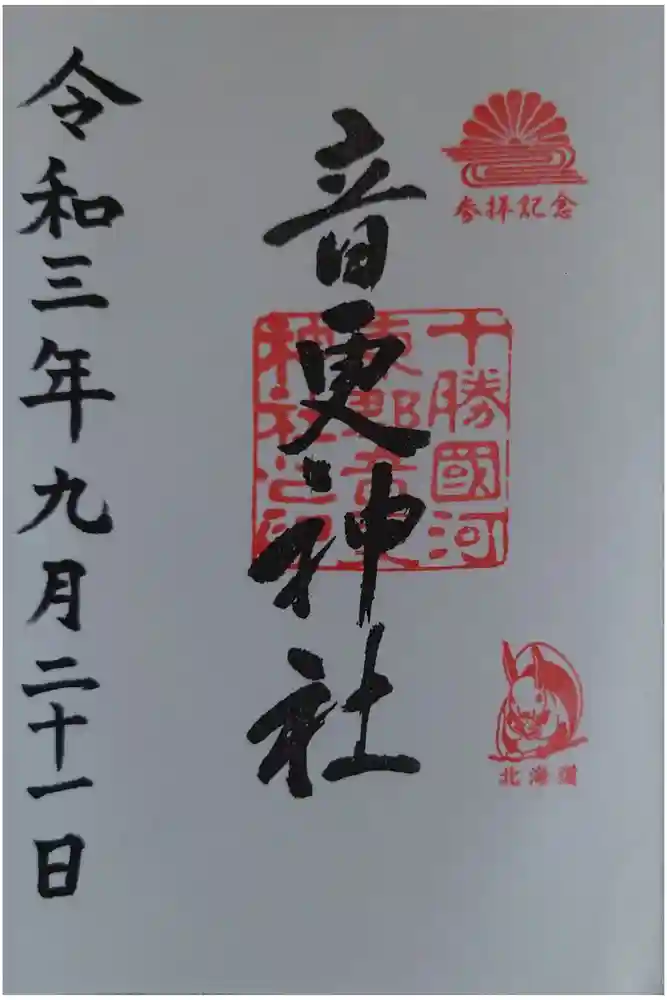 参拝記念
十勝國河
東郡音更
神社之印
北海道
音更神社
令和三年九月二十一日